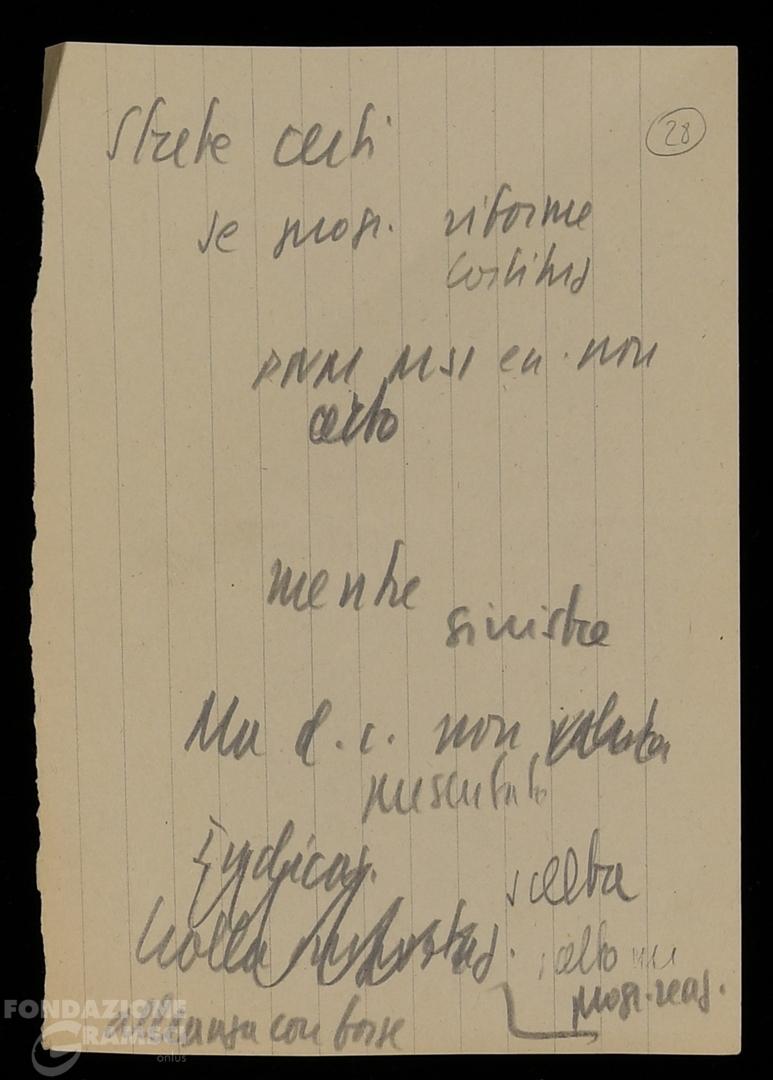 28
State certi
se progr. riforme
costituz
PNM MSI ecc. non
certo
mentre
sinistre
Ma d.c. non valuta
presentato
Indicaz.
scelta
nella
salto nel
progr. reaz.
alleanza con forze
FONDAZIONE
GRAMSCI
onlus